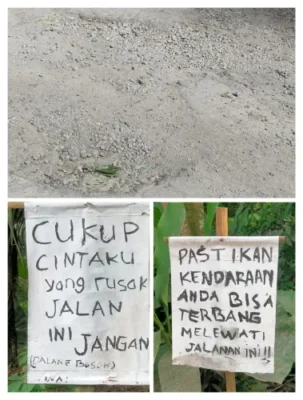 CUKUP
CINTAKU
yang rusak
JALAN
INI JANGAN
PASTIKAN
KENDARAAN
ANDA BISA
TERBANG
MELEWATI
JALANAN INI!!